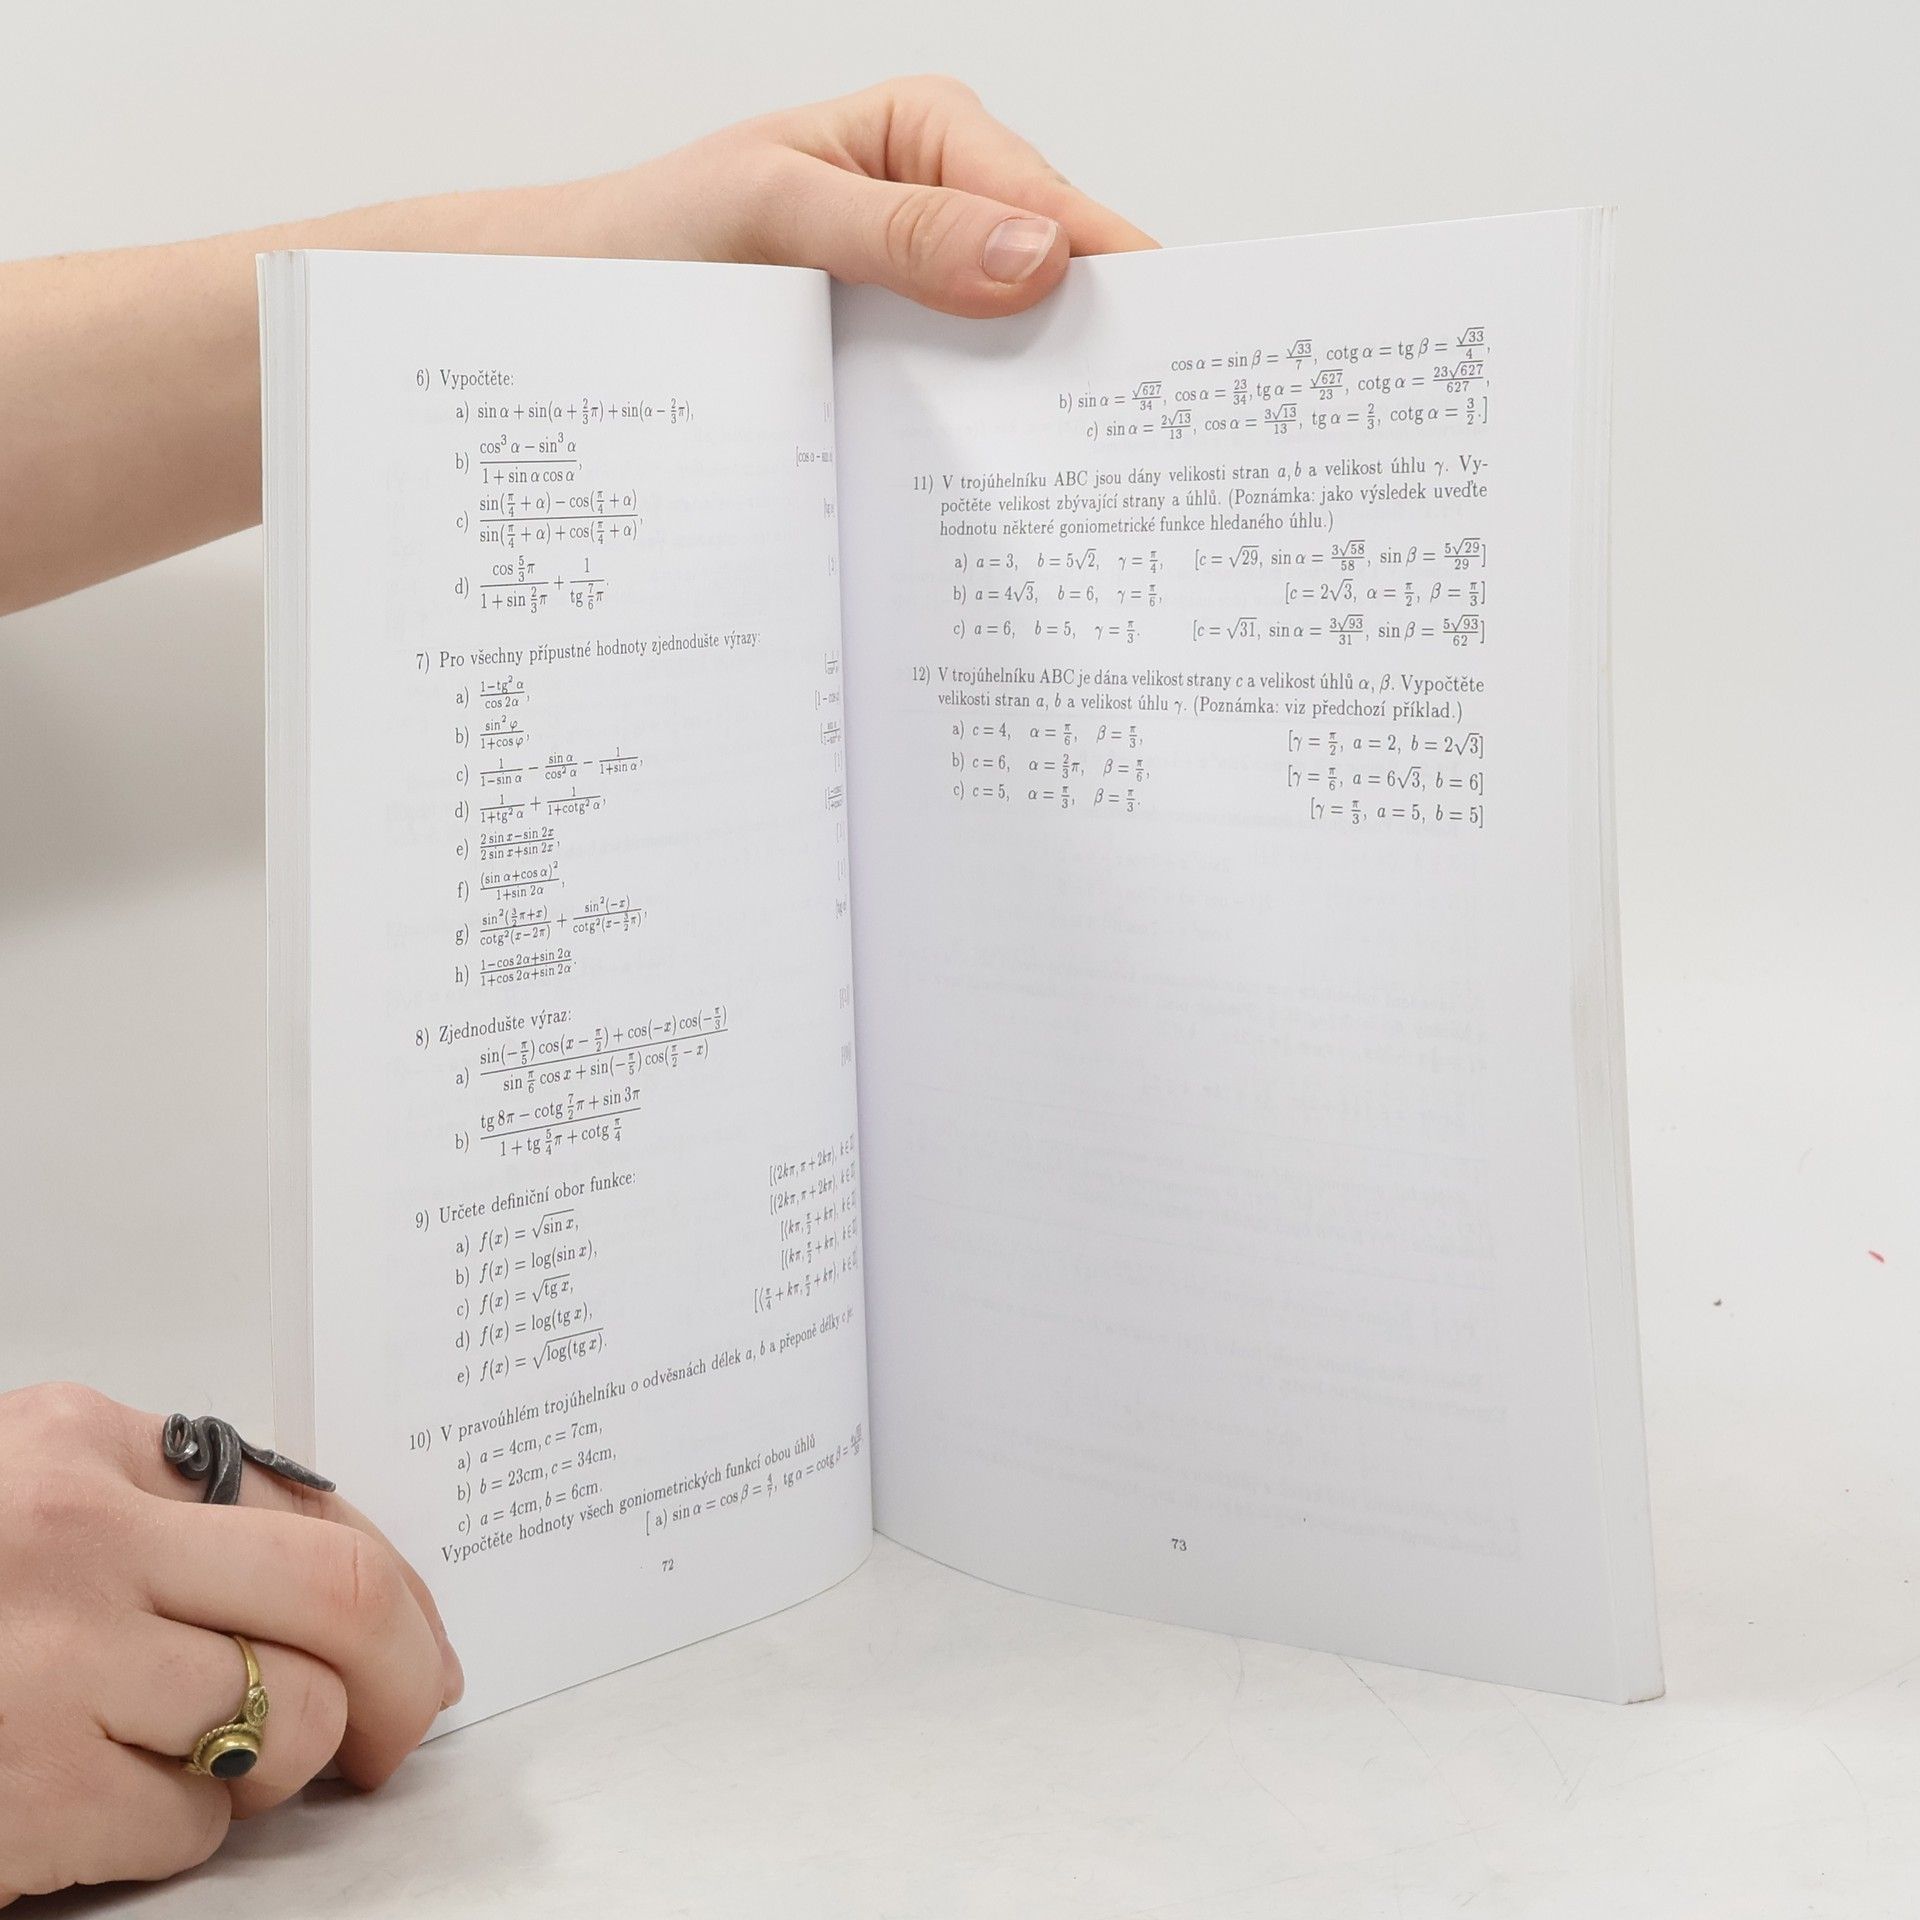 6) Vypočtěte:
a) sin α + sin(α + 2/3 π) + sin(α − 2/3 π),
b) (cos³ α − sin³ α)/(1 + sin α cos α), [cos α − sin α]
c) (sin(π/4 + α) − cos(π/4 + α))/(sin(π/4 + α) + cos(π/4 + α)),
d) (cos 5/3 π)/(1 + sin 2/3 π) + 1/(tg 7/6 π).
7) Pro všechny přípustné hodnoty zjednodušte výrazy:
a) (1−tg² α)/(cos 2α),
b) (sin² φ)/(1+cos φ),
c) 1/(1−sin α) − (sin α)/(cos² α) − 1/(1+sin α),
d) 1/(1+tg² α) + 1/(1+cotg² α),
e) (2 sin x−sin 2x)/(2 sin x+sin 2x),
f) (sin α+cos α)²/(1+sin 2α),
g) sin²(3/2 π+x)/cotg²(x−2π) + sin²(−x)/cotg²(x−3/2 π),
h) (1−cos 2α+sin 2α)/(1+cos 2α+sin 2α).
8) Zjednodušte výraz:
a) (sin(−π/5) cos(x − π/2) + cos(−x) cos(−π/3))/(sin π/6 cos x + sin(−π/5) cos(π/2 − x))
b) (tg 8π − cotg 7/2 π + sin 3π)/(1 + tg 5/4 π + cotg π/4)
9) Určete definiční obor funkce:
a) f(x) = √(sin x), [⟨2kπ, π + 2kπ⟩, k ∈
b) f(x) = log(sin x), [(2kπ, π + 2kπ), k ∈
c) f(x) = √(tg x), [⟨kπ, π/2 + kπ), k ∈
d) f(x) = log(tg x), [(kπ, π/2 + kπ), k ∈
e) f(x) = √(log(tg x)). [⟨π/4 + kπ, π/2 + kπ), k ∈
10) V pravoúhlém trojúhelníku o odvěsnách délek a, b a přeponě délky c je:
a) a = 4cm, c = 7cm,
b) b = 23cm, c = 34cm,
c) a = 4cm, b = 6cm.
Vypočtěte hodnoty všech goniometrických funkcí obou úhlů
[ a) sin α = cos β = 4/7, tg α = cotg β =
72
cos α = sin β = √33/7, cotg α = tg β = √33/4,
b) sin α = √627/34, cos α = 23/34, tg α = √627/23, cotg α = 23√627/627,
c) sin α = 2√13/13, cos α = 3√13/13, tg α = 2/3, cotg α = 3/2.]
11) V trojúhelníku ABC jsou dány velikosti stran a, b a velikost úhlu γ. Vy-
počtěte velikost zbývající strany a úhlů. (Poznámka: jako výsledek uveďte
hodnotu některé goniometrické funkce hledaného úhlu.)
a) a = 3, b = 5√2, γ = π/4, [c = √29, sin α = 3√58/58, sin β = 5√29/29]
b) a = 4√3, b = 6, γ = π/6, [c = 2√3, α = π/2, β = π/3]
c) a = 6, b = 5, γ = π/3. [c = √31, sin α = 3√93/31, sin β = 5√93/62]
12) V trojúhelníku ABC je dána velikost strany c a velikost úhlů α, β. Vypočtěte
velikosti stran a, b a velikost úhlu γ. (Poznámka: viz předchozí příklad.)
a) c = 4, α = π/6, β = π/3, [γ = π/2, a = 2, b = 2√3]
b) c = 6, α = 2/3 π, β = π/6, [γ = π/6, a = 6√3, b = 6]
c) c = 5, α = π/3, β = π/3. [γ = π/3, a = 5, b = 5]
73